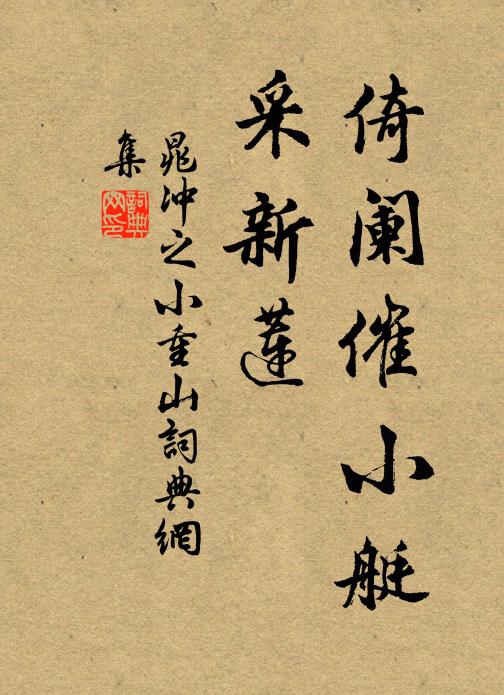 倚阑催小艇
采新蓮
晁冲之小重山詞典網
集
詞典
网印